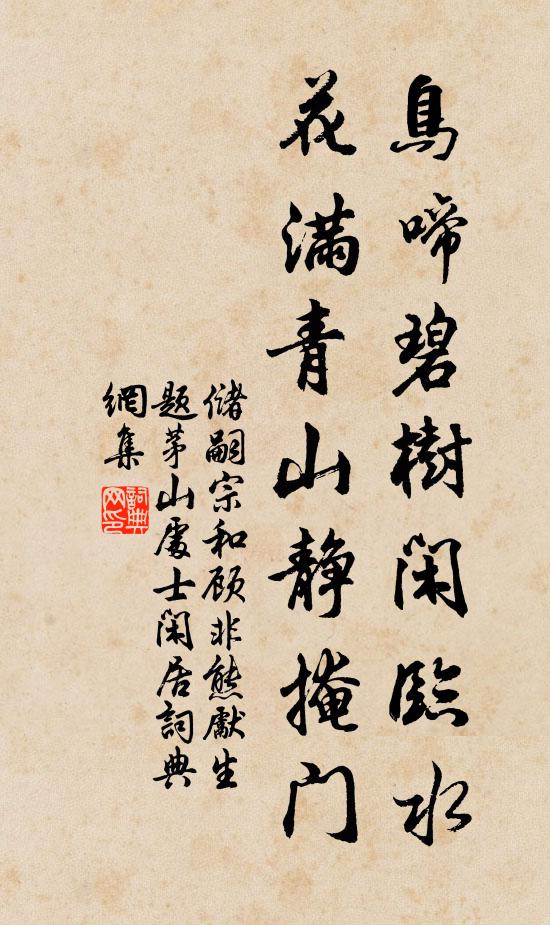 鳥啼碧樹閑臨水
花滿青山静掩門
儲嗣宗和顧非熊獻生
題茅山處士閑居詞典
網集
詞典網印